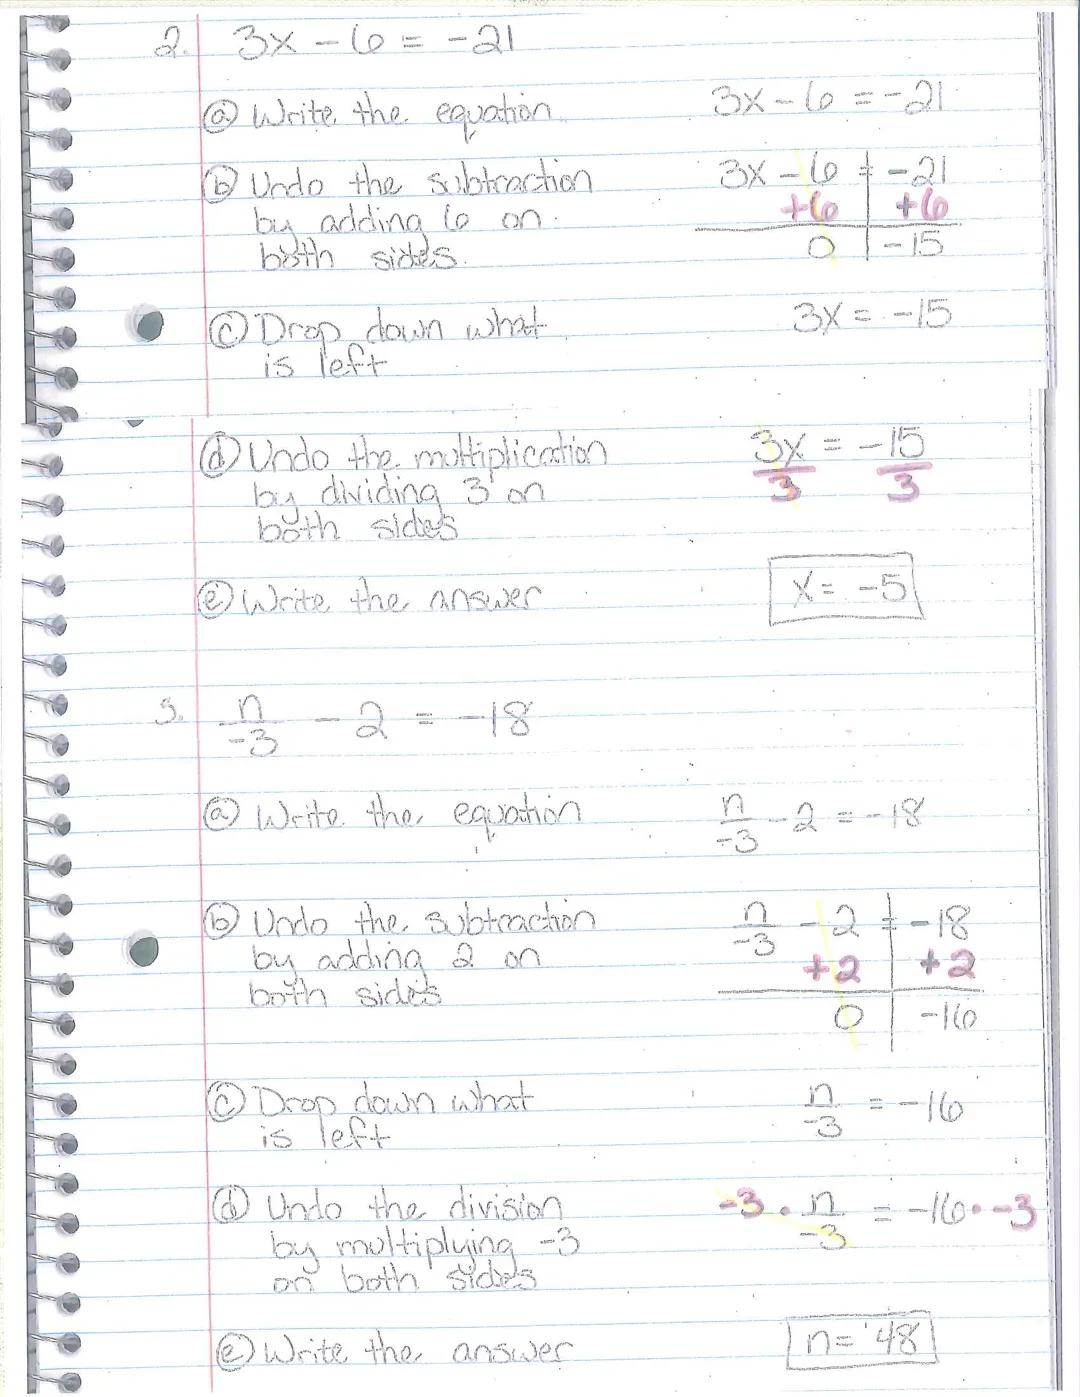 2. 3x - 6 = -21
ⓐ Write the equation 3x - 6 = -21
ⓑ Undo the subtraction 3x - 6 = -21
by adding 6 on +6 +6
both sides. 0 -15
ⓒ Drop down what 3x = -15
is left
ⓓ Undo the multiplication 3x = -15
by dividing 3 on 3 3
both sides
ⓔ Write the answer x = -5
3. n/-3 - 2 = -18
ⓐ Write the equation n/-3 - 2 = -18
ⓑ Undo the subtraction n/-3 - 2 = -18
by adding 2 on +2 +2
both sides 0 -16
ⓒ Drop down what n/-3 = -16
is left
ⓓ Undo the division -3 · n/-3 = -16 · -3
by multiplying -3
on both sides
ⓔ Write the answer n = 48